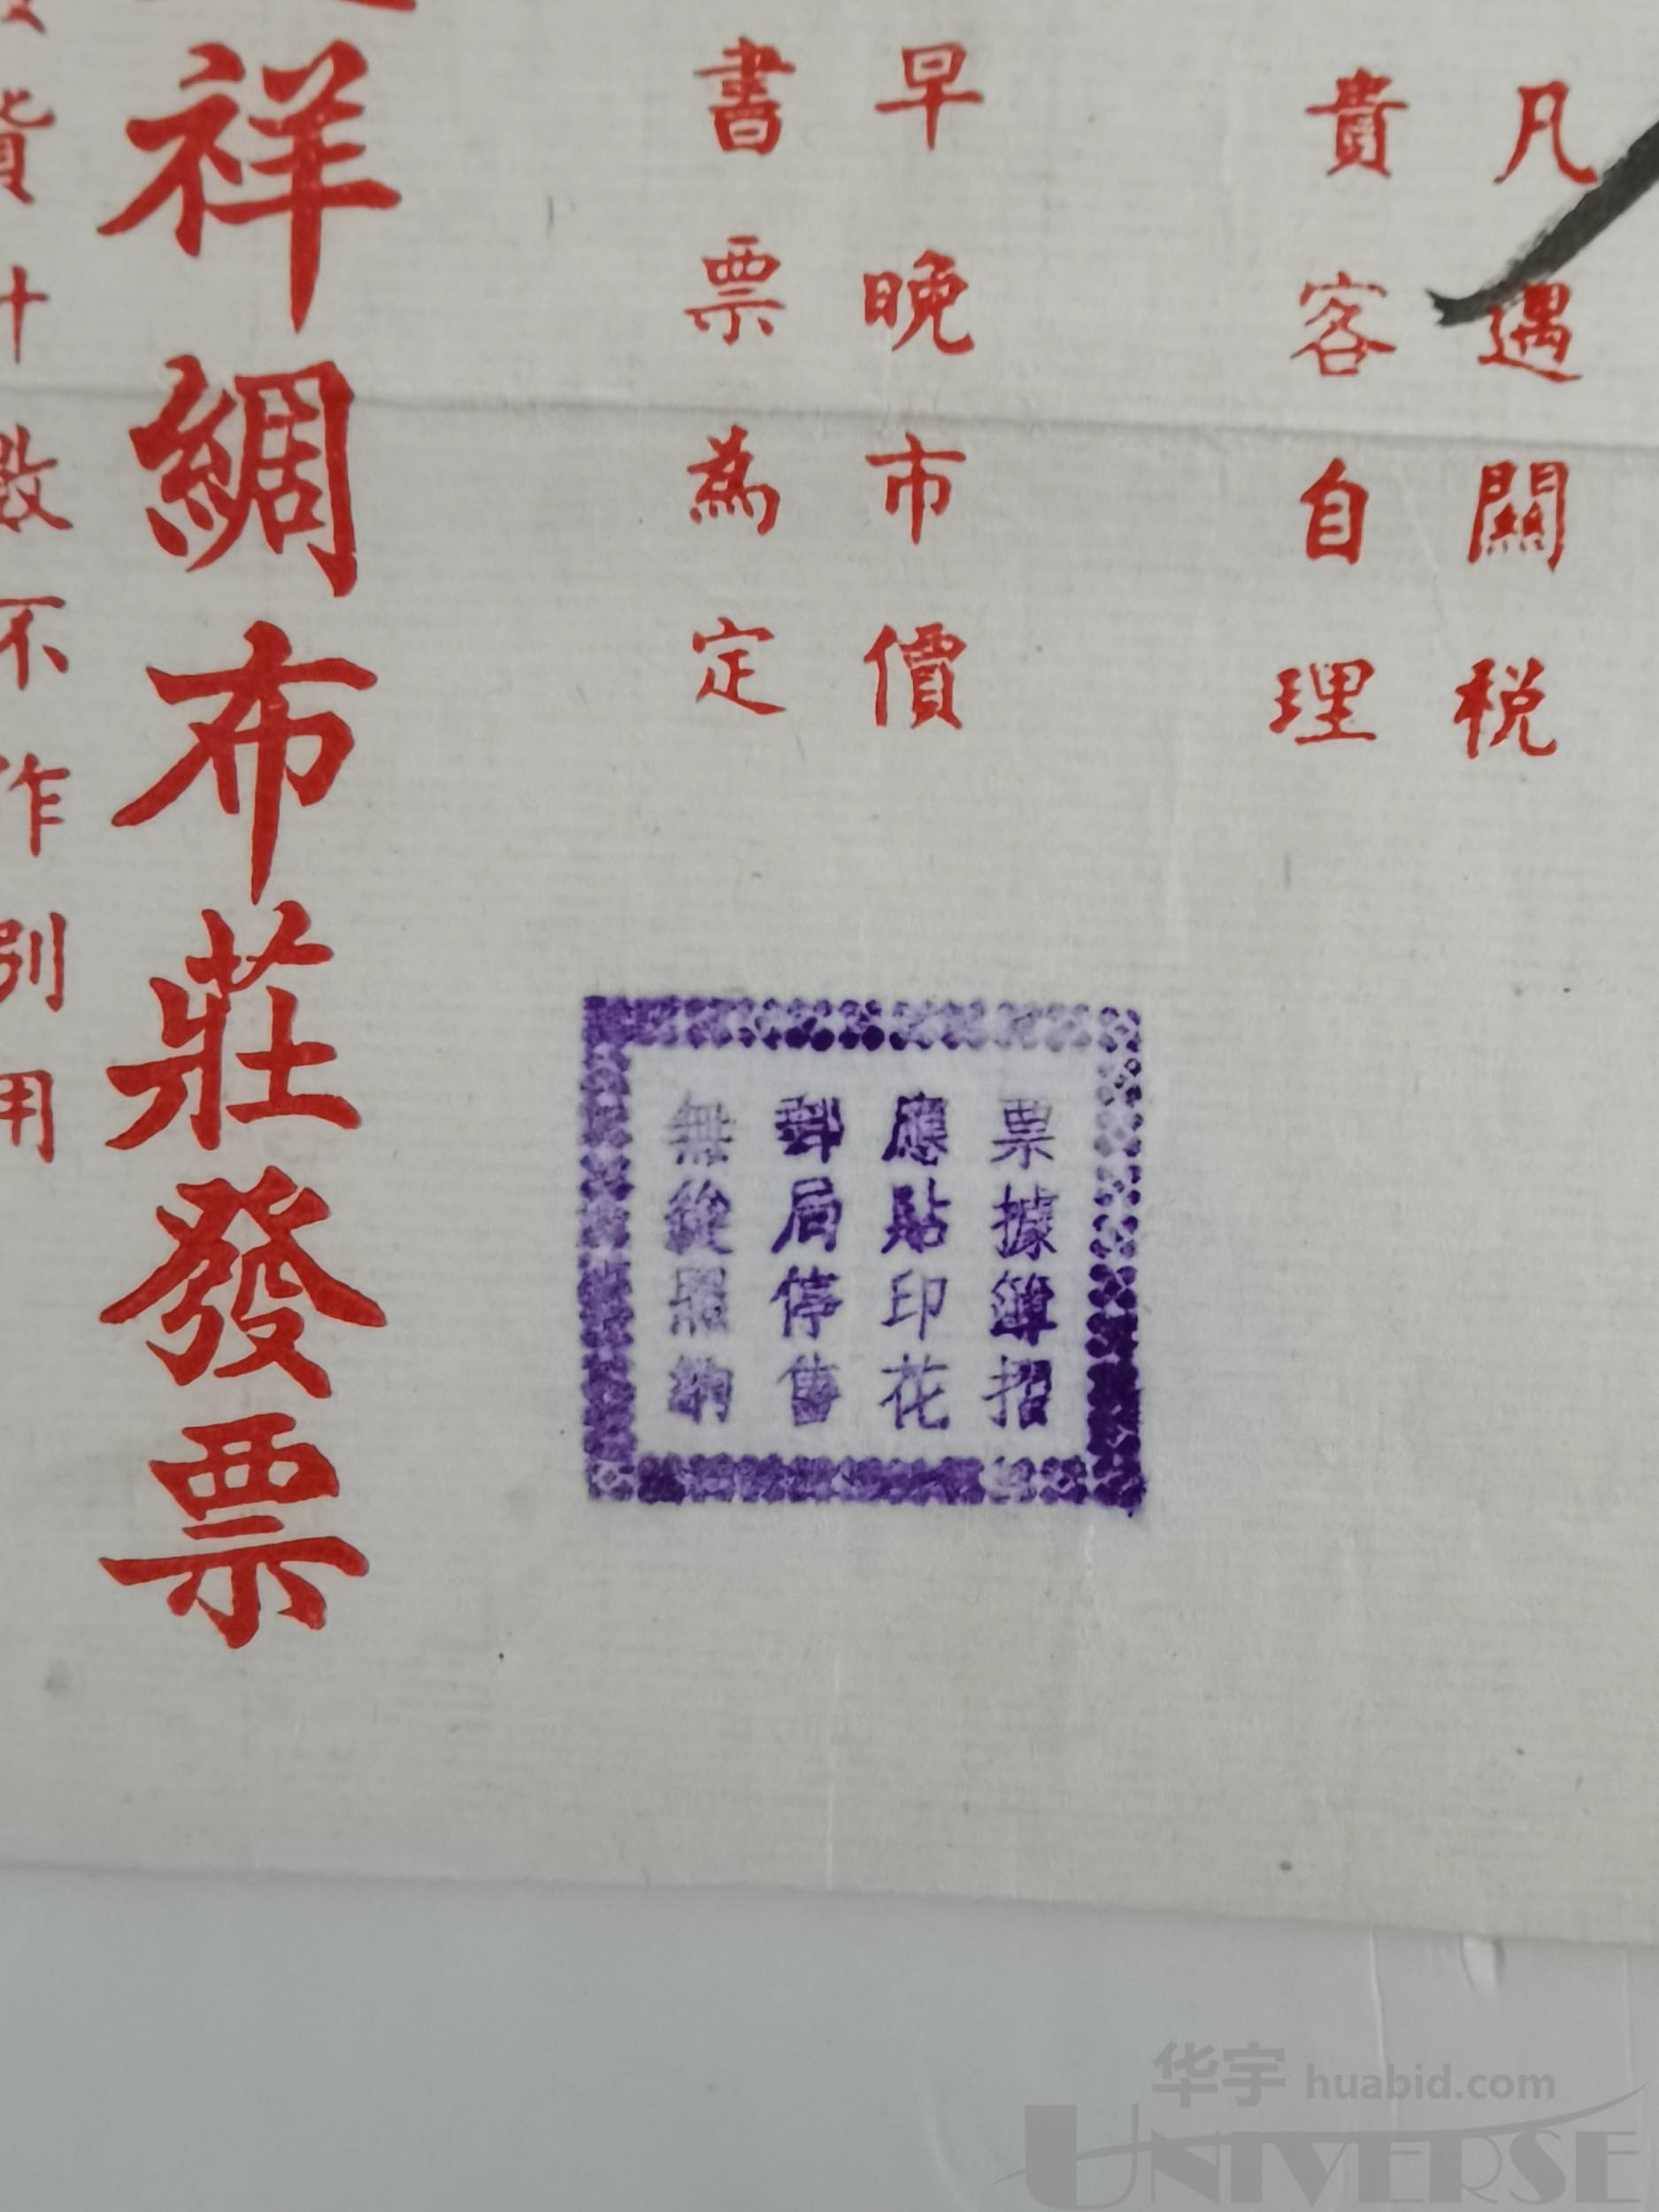 凡遇關税
貴客自理
早晚市價
書票為定
票據簿招
應貼印花
郵局停售
無從照納
祥綢布莊發票
貨十數不作別用
华宇 huabid.com
UNIVERSE